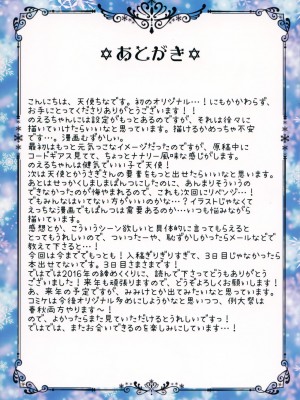 ✡あとがき✡
こんにちは、天使ちなです。初のオリジナル…！にもかかわらず、
お手にとってくださりありがとうございます！！
のえるちゃんには設定がもっとあるのですが、それは徐々に
描いていけたらいいなと思っています。描けるかめっちゃ不安
です…。漫画むずかしい。
最初はもっと元気っこなイメージだったのですが、原稿中に
コードギアス見てて、ちょっとナナリー風味な感じがします。
のえるちゃんは健気でいい子で天使！
次は天使とかうさぎさんの要素をもっと出せたらいいなと思います。
あとはせっかくしましまぱんつにしたのに、あんまりそういうの
できなかったのが悔やまれるので、これも次回にリベンジ…！
でもみんなはいてない方がいいのかな…？イラストじゃなくて
えっちな漫画でもぱんつは需要あるのか…いつも悩みながら
描いています。
感想とか、こういうシーン欲しいと具体的に言ってもらえると
とってもうれしいので、ついったーや、恥ずかしかったらメールなどで
教えて下さると…！
今回は今まででもっとも！入稿ぎりぎりすぎて、3日目じゃなかったら
本出せてないです。3日目さまさまです！
ではでは2016年の締めくくりに、読んで下さってどうもありがとう
ございました！来年も頑張りますので、どうぞよろしくお願いします！
あ、来年の予定ですが、みみけとか出てみたいなと思っています。
コミケは今後オリジナル多めにしようかなと思いつつ、例大祭は
春秋両方やりますー！
ので、よかったらまた見ていただけるとうれしいですっ！
ではでは、またお会いできるのを楽しみにしています…！